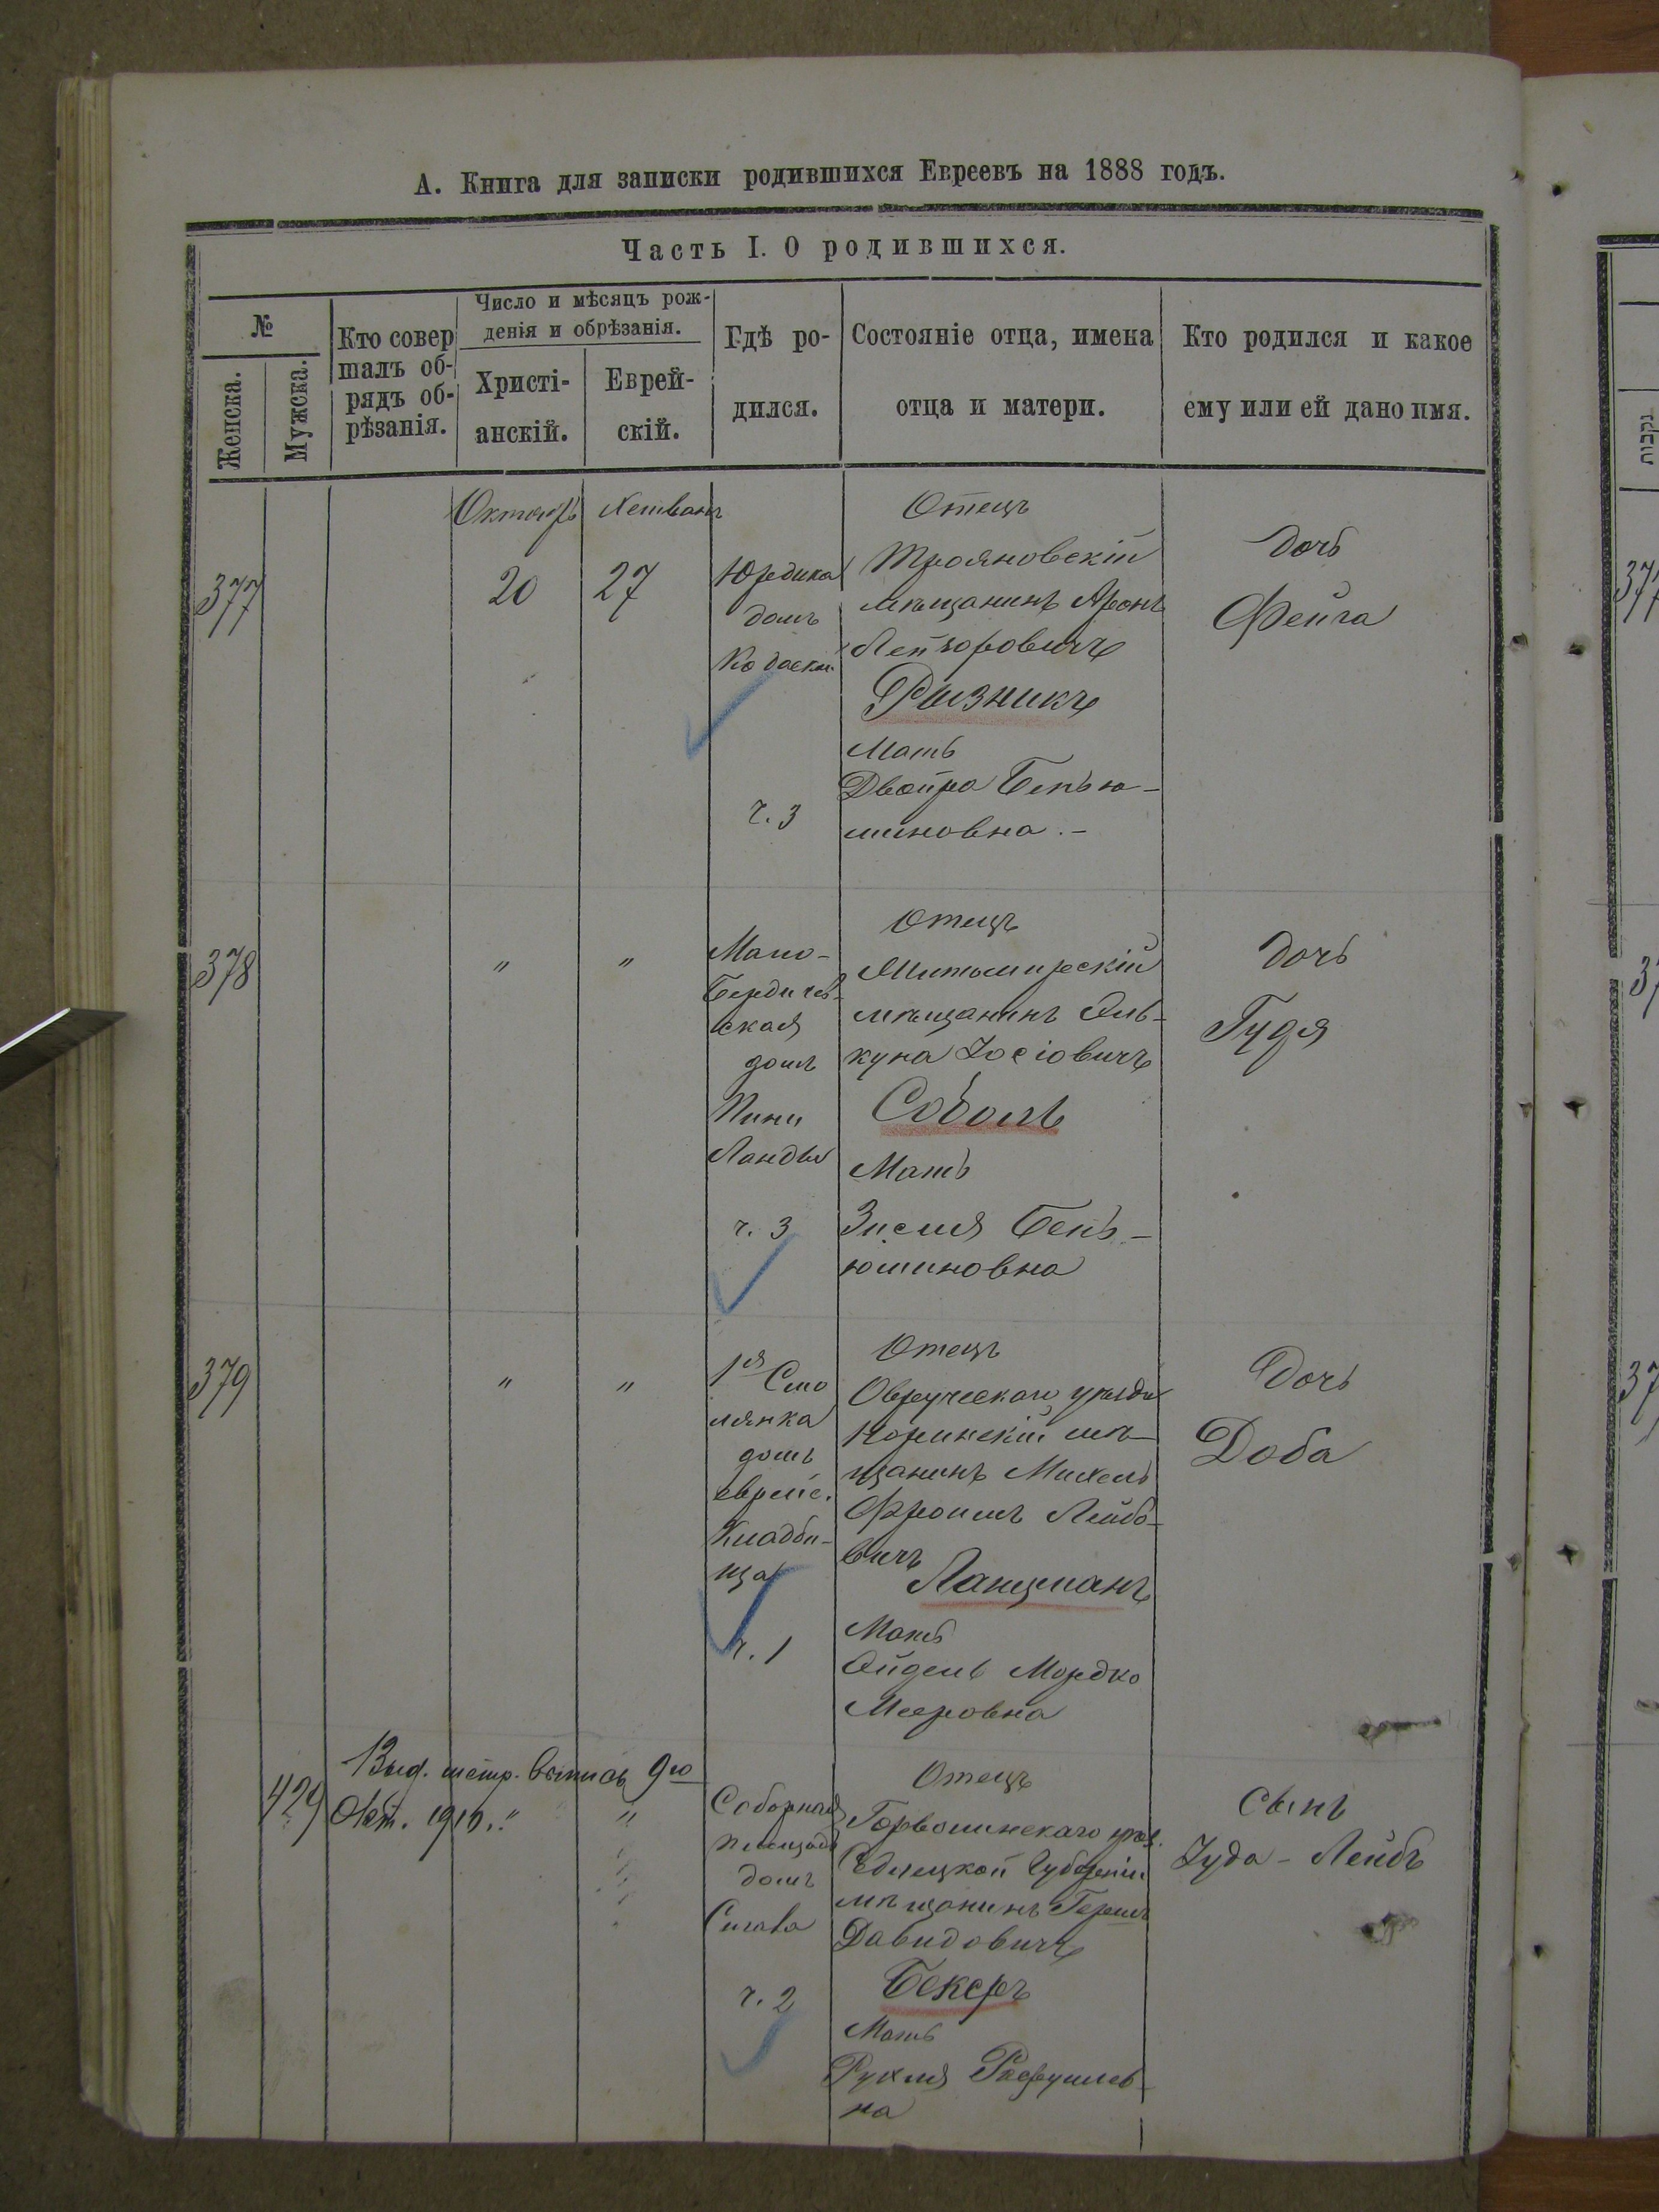 А. Книга для записки родившихся Евреевъ на 1888 годъ.
Часть I. О родившихся.
№
Женска.
Мужска.
Кто совер
шалъ об-
рядъ об-
рѣзанія.
Число и мѣсяцъ рож-
денія и обрѣзанія.
Христі-
анскій.
Еврей-
скій.
Гдѣ ро-
дился.
Состояніе отца, имена
отца и матери.
Кто родился и какое
ему или ей дано имя.
377
Октябрь
20
Хешванъ
27
Юридика
домъ
ч. 3
Отецъ
Трояновскій
мѣщанинъ Аронъ
Лейзоровичъ
Ризникъ
Мать
Двойра Бенъю-
миновна.-
дочь
Фейга
378
"
"
Мало-
Бердичев-
ская
домъ
Пини
Ланды
ч. 3
Отецъ
Житомирскій
мѣщанинъ Эль-
куна Іосіовичъ
Соболь
Мать
Зисля Бень-
юминовна
дочь
Гудя
379
"
"
1я Смо
лянка
домъ
еврейс.
Кладби-
ща
ч. 1
Отецъ
Овручскаго уѣзда
Норинскій мѣ-
щанинъ Михель
Фроимъ Лейбо-
вичъ
Ланцманъ
Мать
Эйдель Мордко
Мееровна
Дочь
Доба
429
Выд. метр. выпись 9го
Окт. 1910."
"
Соборная
площадь
домъ
ч. 2
Отецъ
Горволинскаго уѣз.
Сѣдлецкой Губерніи
мѣщанинъ Гершъ
Давидовичъ
Бекеръ
Мать
Рухля
на
Сынъ
Іуда-Лейбъ
377
37
37
נקבות